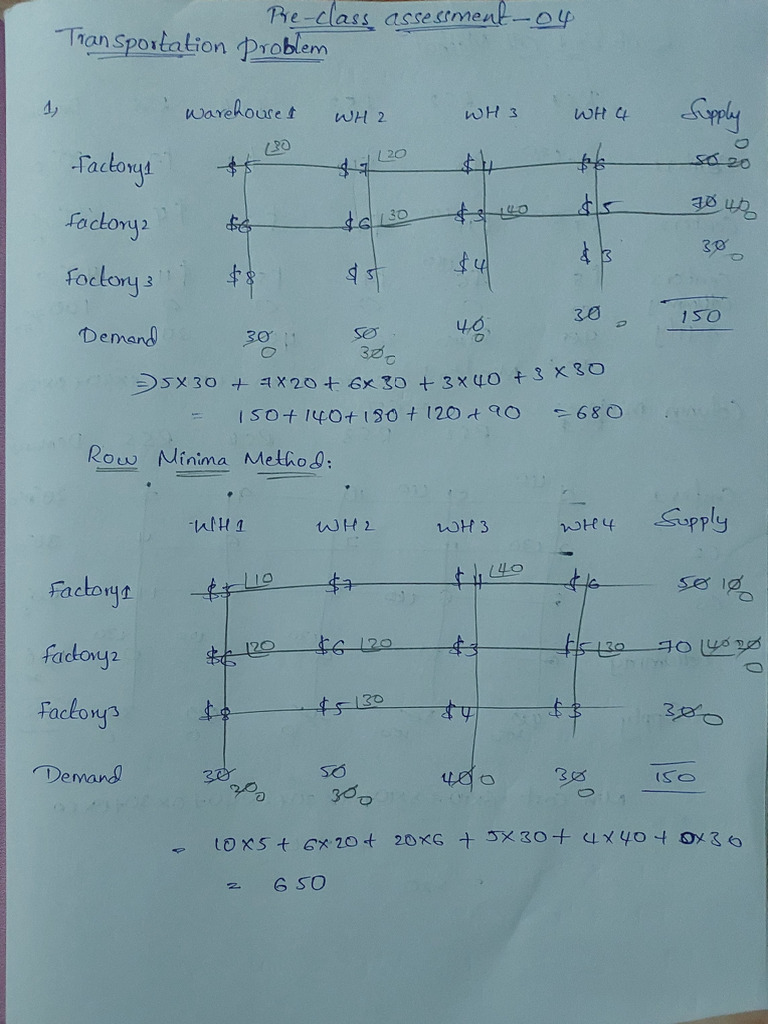 Pre-class assessment-04
Transportation problem
1, Warehouse1 WH 2 WH 3 WH 4 Supply
0
Factory1 $5 30 $7 20 $4 $6 50 20
Factory2 $6 $6 30 $3 40 $5 70 40 0
Factory3 $8 $5 $4 $3 30 0
Demand 30 0 50 30 0 40 0 30 0 150
⇒ 5×30 + 7×20 + 6×30 + 3×40 + 3×30
= 150+140+180+120+90 =680
Row Minima Method:
WH1 WH2 WH3 WH4 Supply
Factory1 $5 10 $7 $4 40 $6 50 10 0
Factory2 $6 20 $6 20 $3 $5 30 70 40 20 0
Factory3 $8 $5 30 $4 $3 30 0
Demand 30 20 0 50 30 0 40 0 30 0 150
= 10×5 + 6×20 + 20×6 + 5×30 + 4×40 + ×30
= 650